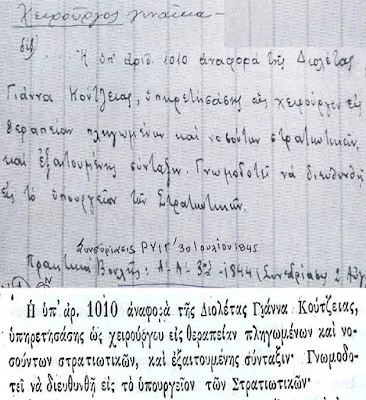 Χειροῦργος γυναίκα-
64) ... Ἡ ὑπ' ἀριθ. 1010 ἀναφορὰ τῆς Διολέτας
Γιάννα Κούτζειας, ὑπηρετησάσης ὡς χειρούργου εἰς
θεραπείαν πληγωμένων καὶ νοσούντων στρατιωτικῶν,
καὶ ἐξαιτουμένης σύνταξιν. Γνωμοδοτεῖ νὰ διευθυνθῇ
εἰς τὸ ὑπουργεῖον τῶν Στρατιωτικῶν.
Συνεδρίασις ΡΥΙΓ' 30 Ιουλίου 1845
Πρακτικὰ Βουλῆς: Α - Α - 3ος - 1844 (Συνεδρίασις 2 Αὐγ.
Ἡ ὑπ' ἀρ. 1010 ἀναφορὰ τῆς Διολέτας Γιάννα Κούτζειας,
ὑπηρετησάσης ὡς χειρούργου εἰς θεραπείαν πληγωμένων καὶ νο-
σούντων στρατιωτικῶν, καὶ ἐξαιτουμένης σύνταξιν· Γνωμοδο-
τεῖ νὰ διευθυνθῇ εἰς τὸ ὑπουργεῖον τῶν Στρατιωτικῶν·